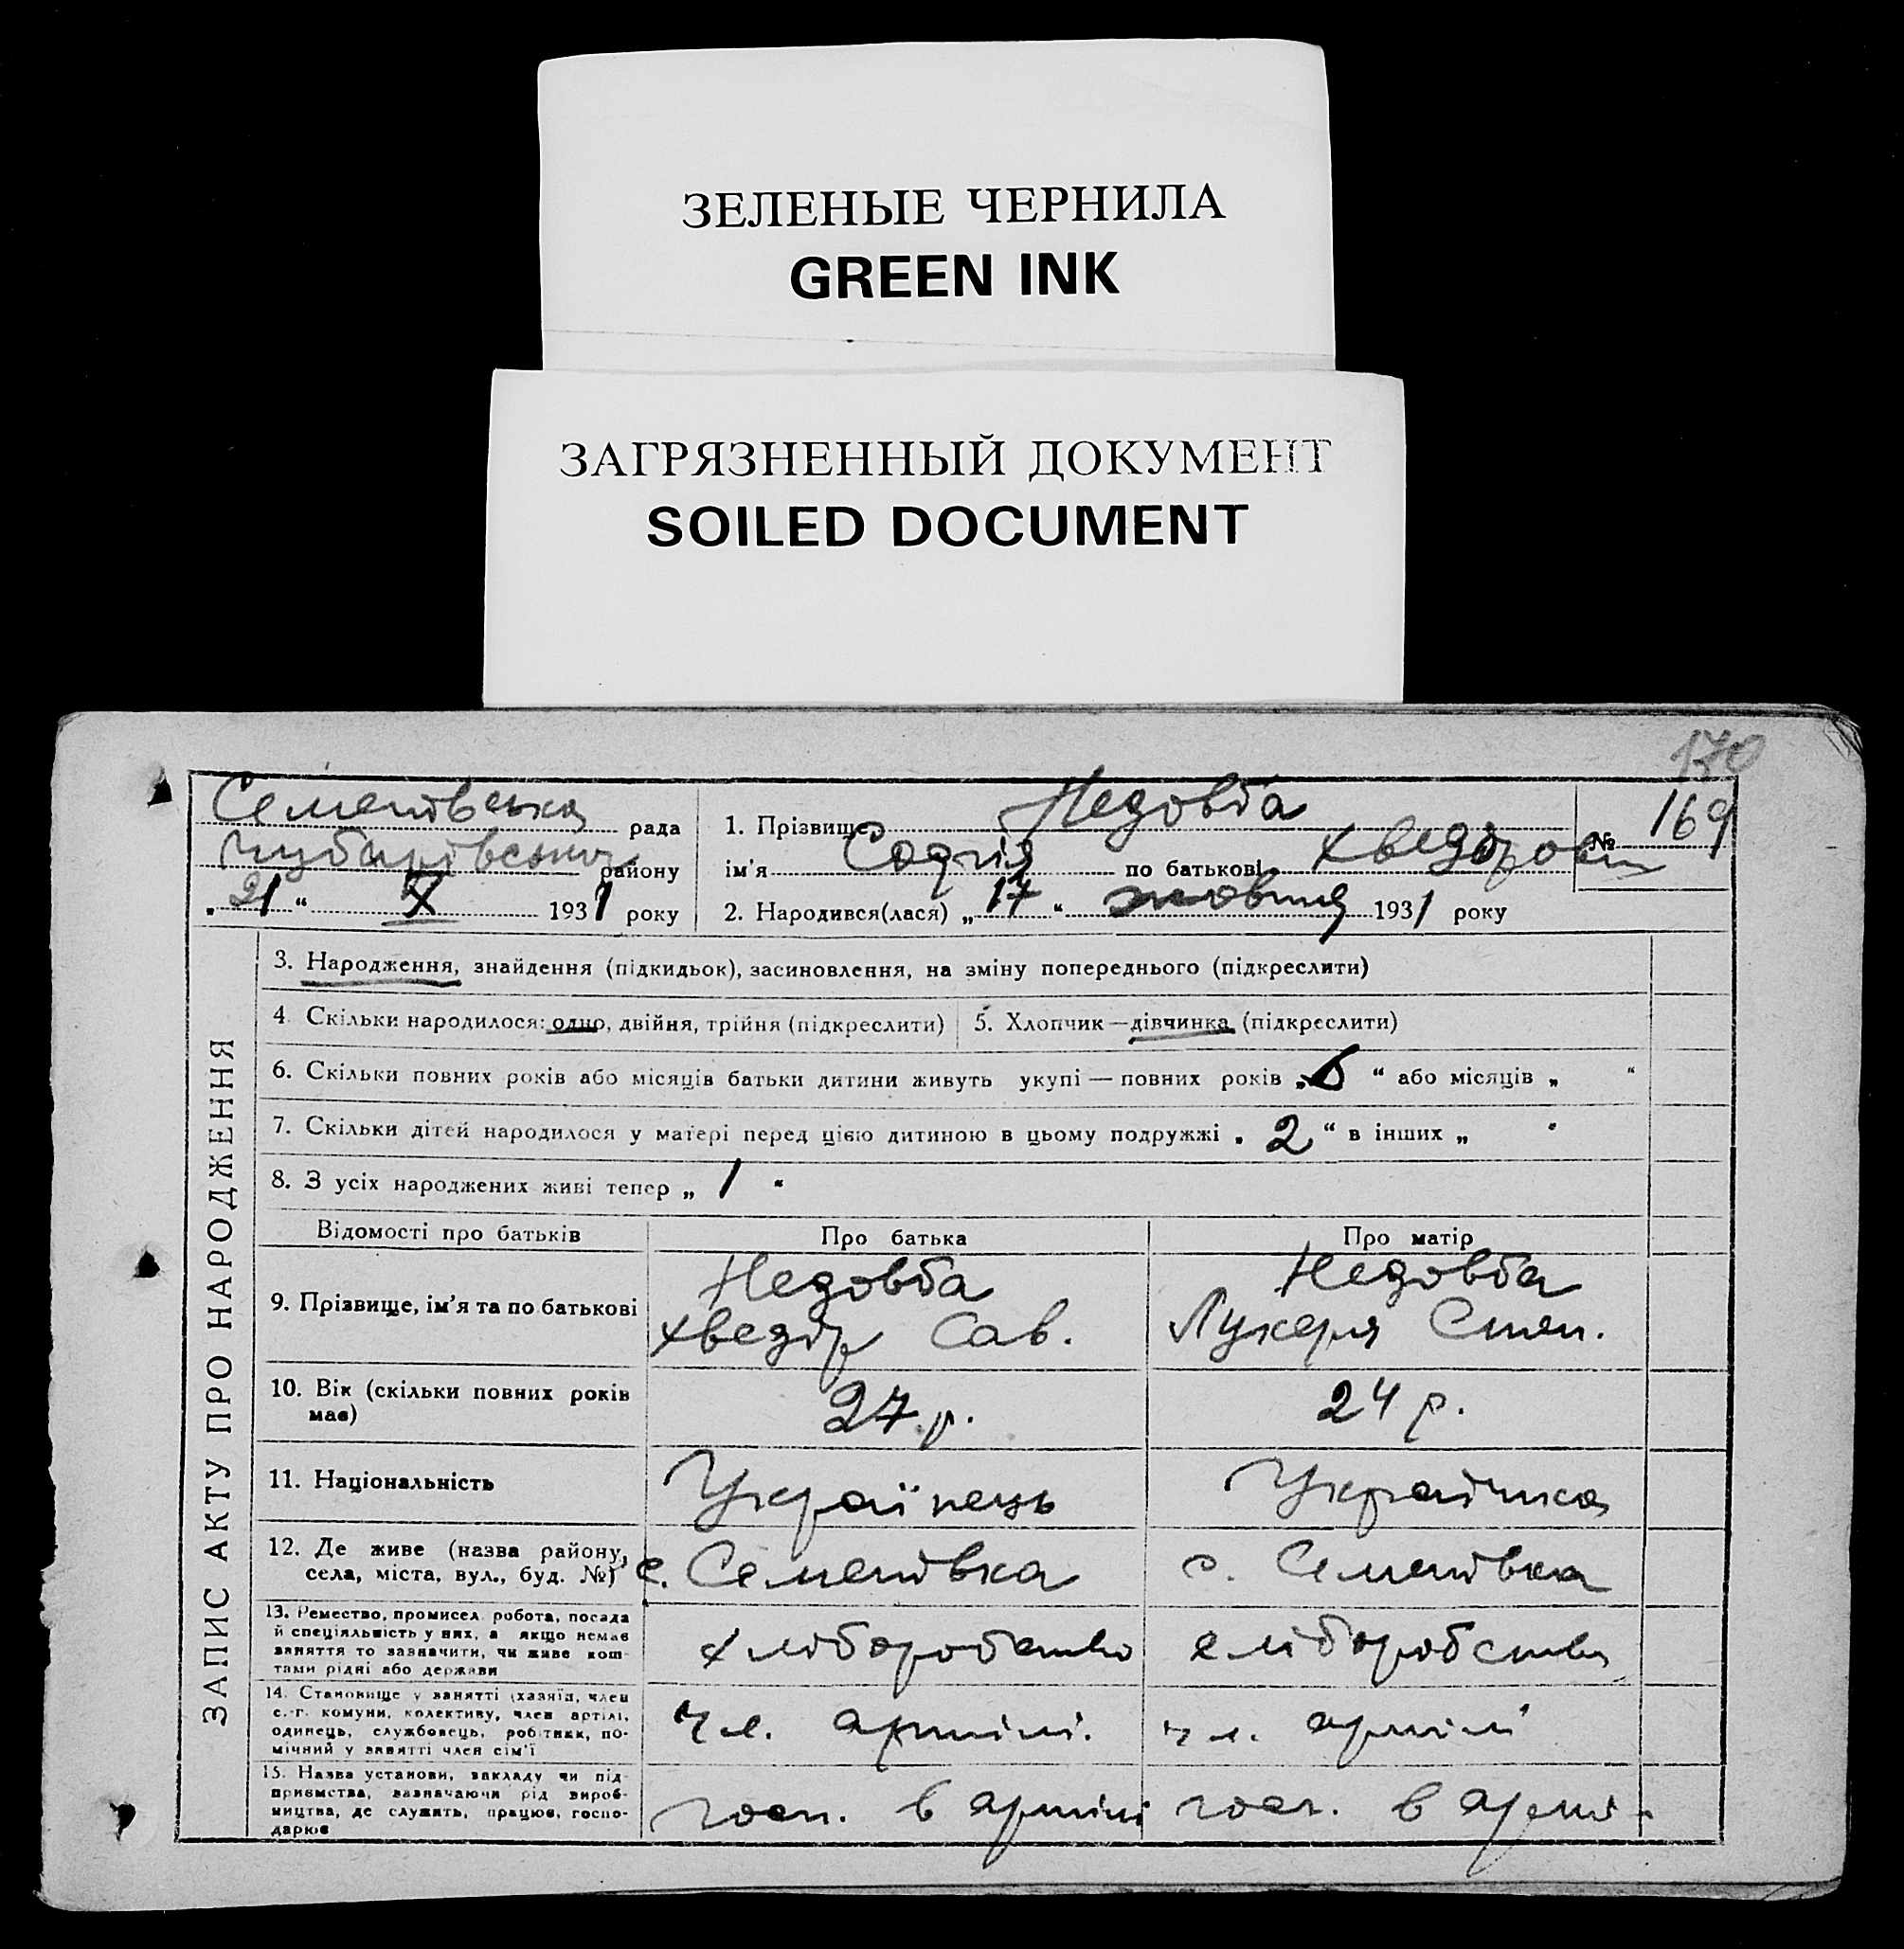 ЗЕЛЕНЫЕ ЧЕРНИЛА
GREEN INK
ЗАГРЯЗНЕННЫЙ ДОКУМЕНТ
SOILED DOCUMENT
170
Семенівська рада
Чубарівського району
„21“ X 1931 року
1. Прізвище Недовба
ім'я Софія по батькові Хведоровн
№ 169
2. Народився(лася) „17“ жовтня 1931 року
ЗАПИС АКТУ ПРО НАРОДЖЕННЯ
3. Народження, знайдення (підкидьок), засиновлення, на зміну попереднього (підкреслити)
4. Скільки народилося: одно, двійня, трійня (підкреслити) 5. Хлопчик—дівчинка (підкреслити)
6. Скільки повних років або місяців батьки дитини живуть укупі — повних років „ “ або місяців „ “
7. Скільки дітей народилося у матері перед цією дитиною в цьому подружжі „2“ в інших „ “
8. З усіх народжених живі тепер „1“
Відомості про батьків Про батька Про матір
9. Прізвище, ім'я та по батькові
Недовба
Хведір Сав.
Недовба
Лукеря Степ.
10. Вік (скільки повних років
має)
27 р.
24 р.
11. Національність
Українець
Українка
12. Де живе (назва району,
села, міста, вул., буд. №)
с. Семенівка
с. Семенівка
13. Ремество, промисел робота, посада
й спеціяльність у них, а якщо немає
заняття то зазначити, чи живе кош-
тами рідні або держави
хліборобство
хліборобство
14. Становище у занятті (хазяїн, член
с.-г. комуни, колективу, член артілі,
одинець, службовець, робітник, по-
мічний у занятті член сім'ї
чл. артілі.
чл. артілі
15. Назва установи, закладу чи під-
приємства, зазначаючи рід вироб-
ництва, де служить, працює, госпо-
дарює
госп. в артілі
госп. в арті